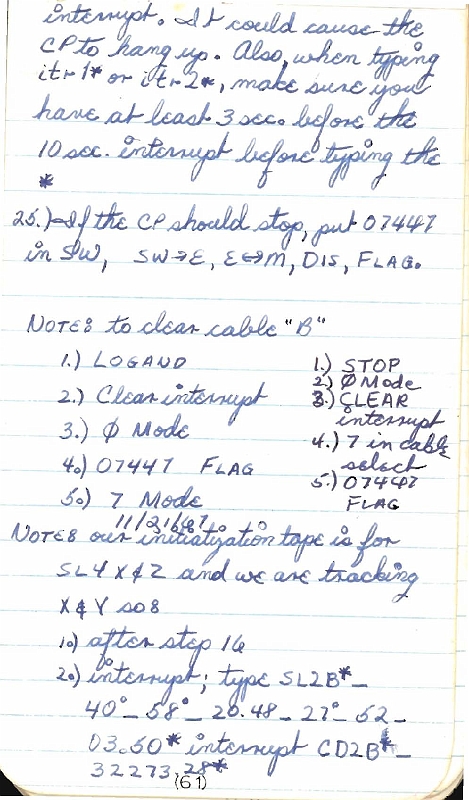 interrupt. It could cause the
CP to hang up. Also, when typing
itr1* or itr2*, make sure you
have at least 3 sec. before the
10 sec. interrupt before typing the
*
25.) If the CP should stop, put 07447
in SW, SW→E, E↔M, DIS, FLAG.
NOTE: to clear cable "B"
1.) LOGAND
2.) Clear interrupt
3.) Ø Mode
4.) 07447 FLAG
5.) 7 Mode
1.) STOP
2.) Ø Mode
3.) CLEAR
interrupt
4.) 7 in cable
select
5.) 07447
FLAG
11/21/67
NOTE: our initialization tape is for
SL4 X&Z and we are tracking
X&Y so:
1.) after step 16
2.) interrupt; type SL2B*_
40°_58°_20.48_27°_52_
03.50* interrupt CD2B*_
32273.28*
(61)